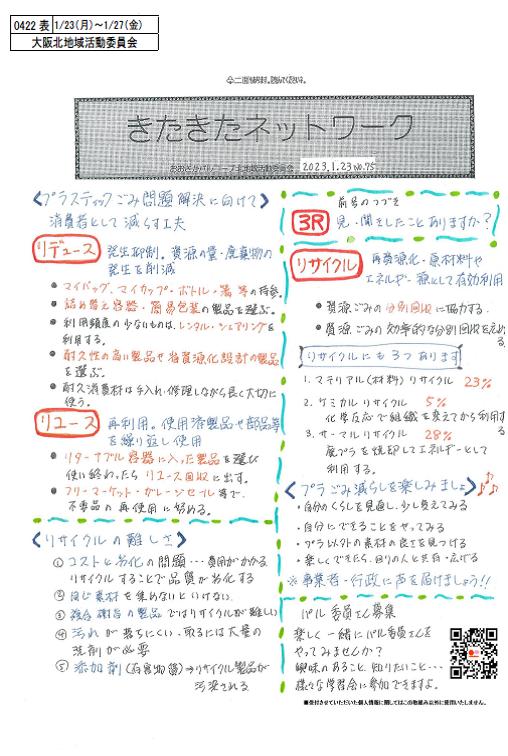 0422 表 1/23(月)～1/27(金)
大阪北地域活動委員会
きたきたネットワーク
おおさかパルコープ北地域活動委員会 2023.1.23 No.75
〈プラスチックごみ問題解決に向けて〉
消費者として減らす工夫
リデュース 発生抑制。資源の量・廃棄物の
発生を削減
• マイバッグ、マイカップ・ボトル・箸 等の持参。
• 詰め替え容器・簡易包装の製品を選ぶ。
• 利用頻度の少ないものは、レンタル・シェアリングを
利用する。
• 耐久性の高い製品や省資源化設計の製品
を選ぶ。
• 耐久消費材は手入れ・修理しながら長く大切に
使う。
リユース 再利用。使用済製品や部品等
を繰り返し使用
• リターナブル容器に入った製品を選び
使い終わったら リユース回収に出す。
• フリーマーケット・ガレージセール等で、
不要品の再使用に努める。
〈リサイクルの難しさ〉
① コストと劣化の問題…費用がかかる
リサイクルすることで品質が劣化する
② 同じ素材を集めないといけない
③ 複合構造の製品ではリサイクルが難しい
④ 汚れが落ちにくい、取るには大量の
洗剤が必要
⑤ 添加剤(有害物質)→リサイクル製品が
汚染される
前号のつづき
3R 見・聞きしたことありますか?
リサイクル 再資源化・原材料や
エネルギー源として有効利用
• 資源ごみの分別回収に協力する。
• 資源ごみの効率的な分別回収を広める
リサイクルにも3つあります
1. マテリアル(材料)リサイクル 23%
2. ケミカルリサイクル 5%
化学反応で組織を変えてから利用する
3. サーマルリサイクル 28%
廃プラを焼却してエネルギーとして
利用する。
〈プラごみ減らしを楽しみましょ〉
• 自分のくらしを見直し、少し変えてみる
• 自分にできることをやってみる
• プラ以外の素材の良さを見つける
• 楽しくできたら、回りの人と共有・広げる
※事業者・行政に声を届けましょう!!
パル委員さん募集
楽しく一緒にパル委員さんを
やってみませんか?
興味のあること、知りたいこと…
様々な学習会に参加できますよ。
■受付させていただいた個人情報に関してはこの取組み以外に使用いたしません。